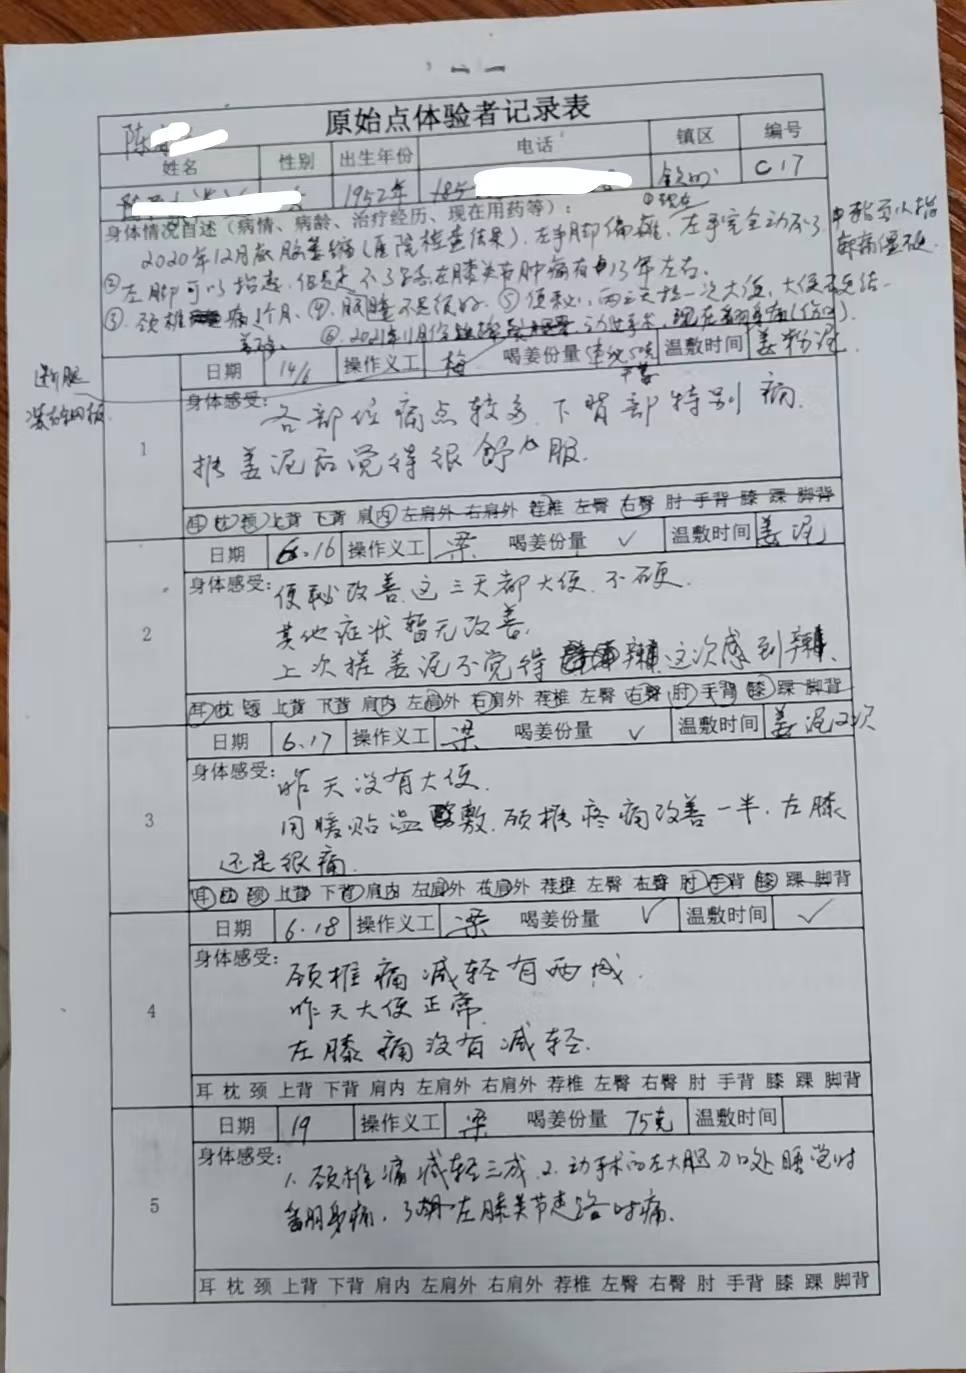 原始点体验者记录表
陈
姓名 性别 出生年份 电话 镇区 编号
1952年 185 C17
身体情况自述（病情、病龄、治疗经历、现在用药等）：
2020年12月底脑萎缩(医院检查结果)．左手脚偏瘫，左手完全动不了
②左脚可以抬起，但是走不了路 左膝关节肿痛有 13年左右。
③颈椎 痛1个月、④眼睛不是很好．⑤便秘，两三天拉一次大便，大便不
⑥2021年11月份 动过手术，现在翻身痛(伤口)．
日期 14/6 操作义工 梅 喝姜份量 50克 温敷时间 姜粉泥
1
身体感受：各部位痛点较多，下背部特别痛．
搓姜泥后觉得很舒服．
耳 枕 颈 上背 下背 肩内 左肩外 右肩外 荐椎 左臀 右臀 肘 手背 膝 踝 脚背
日期 6.16 操作义工 梁 喝姜份量 ✓ 温敷时间 姜泥
2
身体感受：便秘改善，这三天都大便．不硬．
其他症状暂无改善．
上次搓姜泥不觉得 辣 这次感到辣．
耳 枕 颈 上背 下背 肩内 左肩外 右肩外 荐椎 左臀 右臀 肘 手背 膝 踝 脚背
日期 6.17 操作义工 梁 喝姜份量 ✓ 温敷时间 姜泥2次
3
身体感受：昨天没有大便．
用暖贴温敷．颈椎疼痛改善一半．左膝
还是很痛．
耳 枕 颈 上背 下背 肩内 左肩外 右肩外 荐椎 左臀 右臀 肘 手背 膝 踝 脚背
日期 6.18 操作义工 梁 喝姜份量 ✓ 温敷时间 ✓
4
身体感受：颈椎痛减轻有两成．
昨天大便正常
左膝痛没有减轻．
耳 枕 颈 上背 下背 肩内 左肩外 右肩外 荐椎 左臀 右臀 肘 手背 膝 踝 脚背
日期 19 操作义工 梁 喝姜份量 75克 温敷时间
5
身体感受：1. 颈椎痛减轻三成．2. 动手术的左大腿刀口处睡觉时
翻身痛．3 左膝关节走路时痛．
耳 枕 颈 上背 下背 肩内 左肩外 右肩外 荐椎 左臀 右臀 肘 手背 膝 踝 脚背